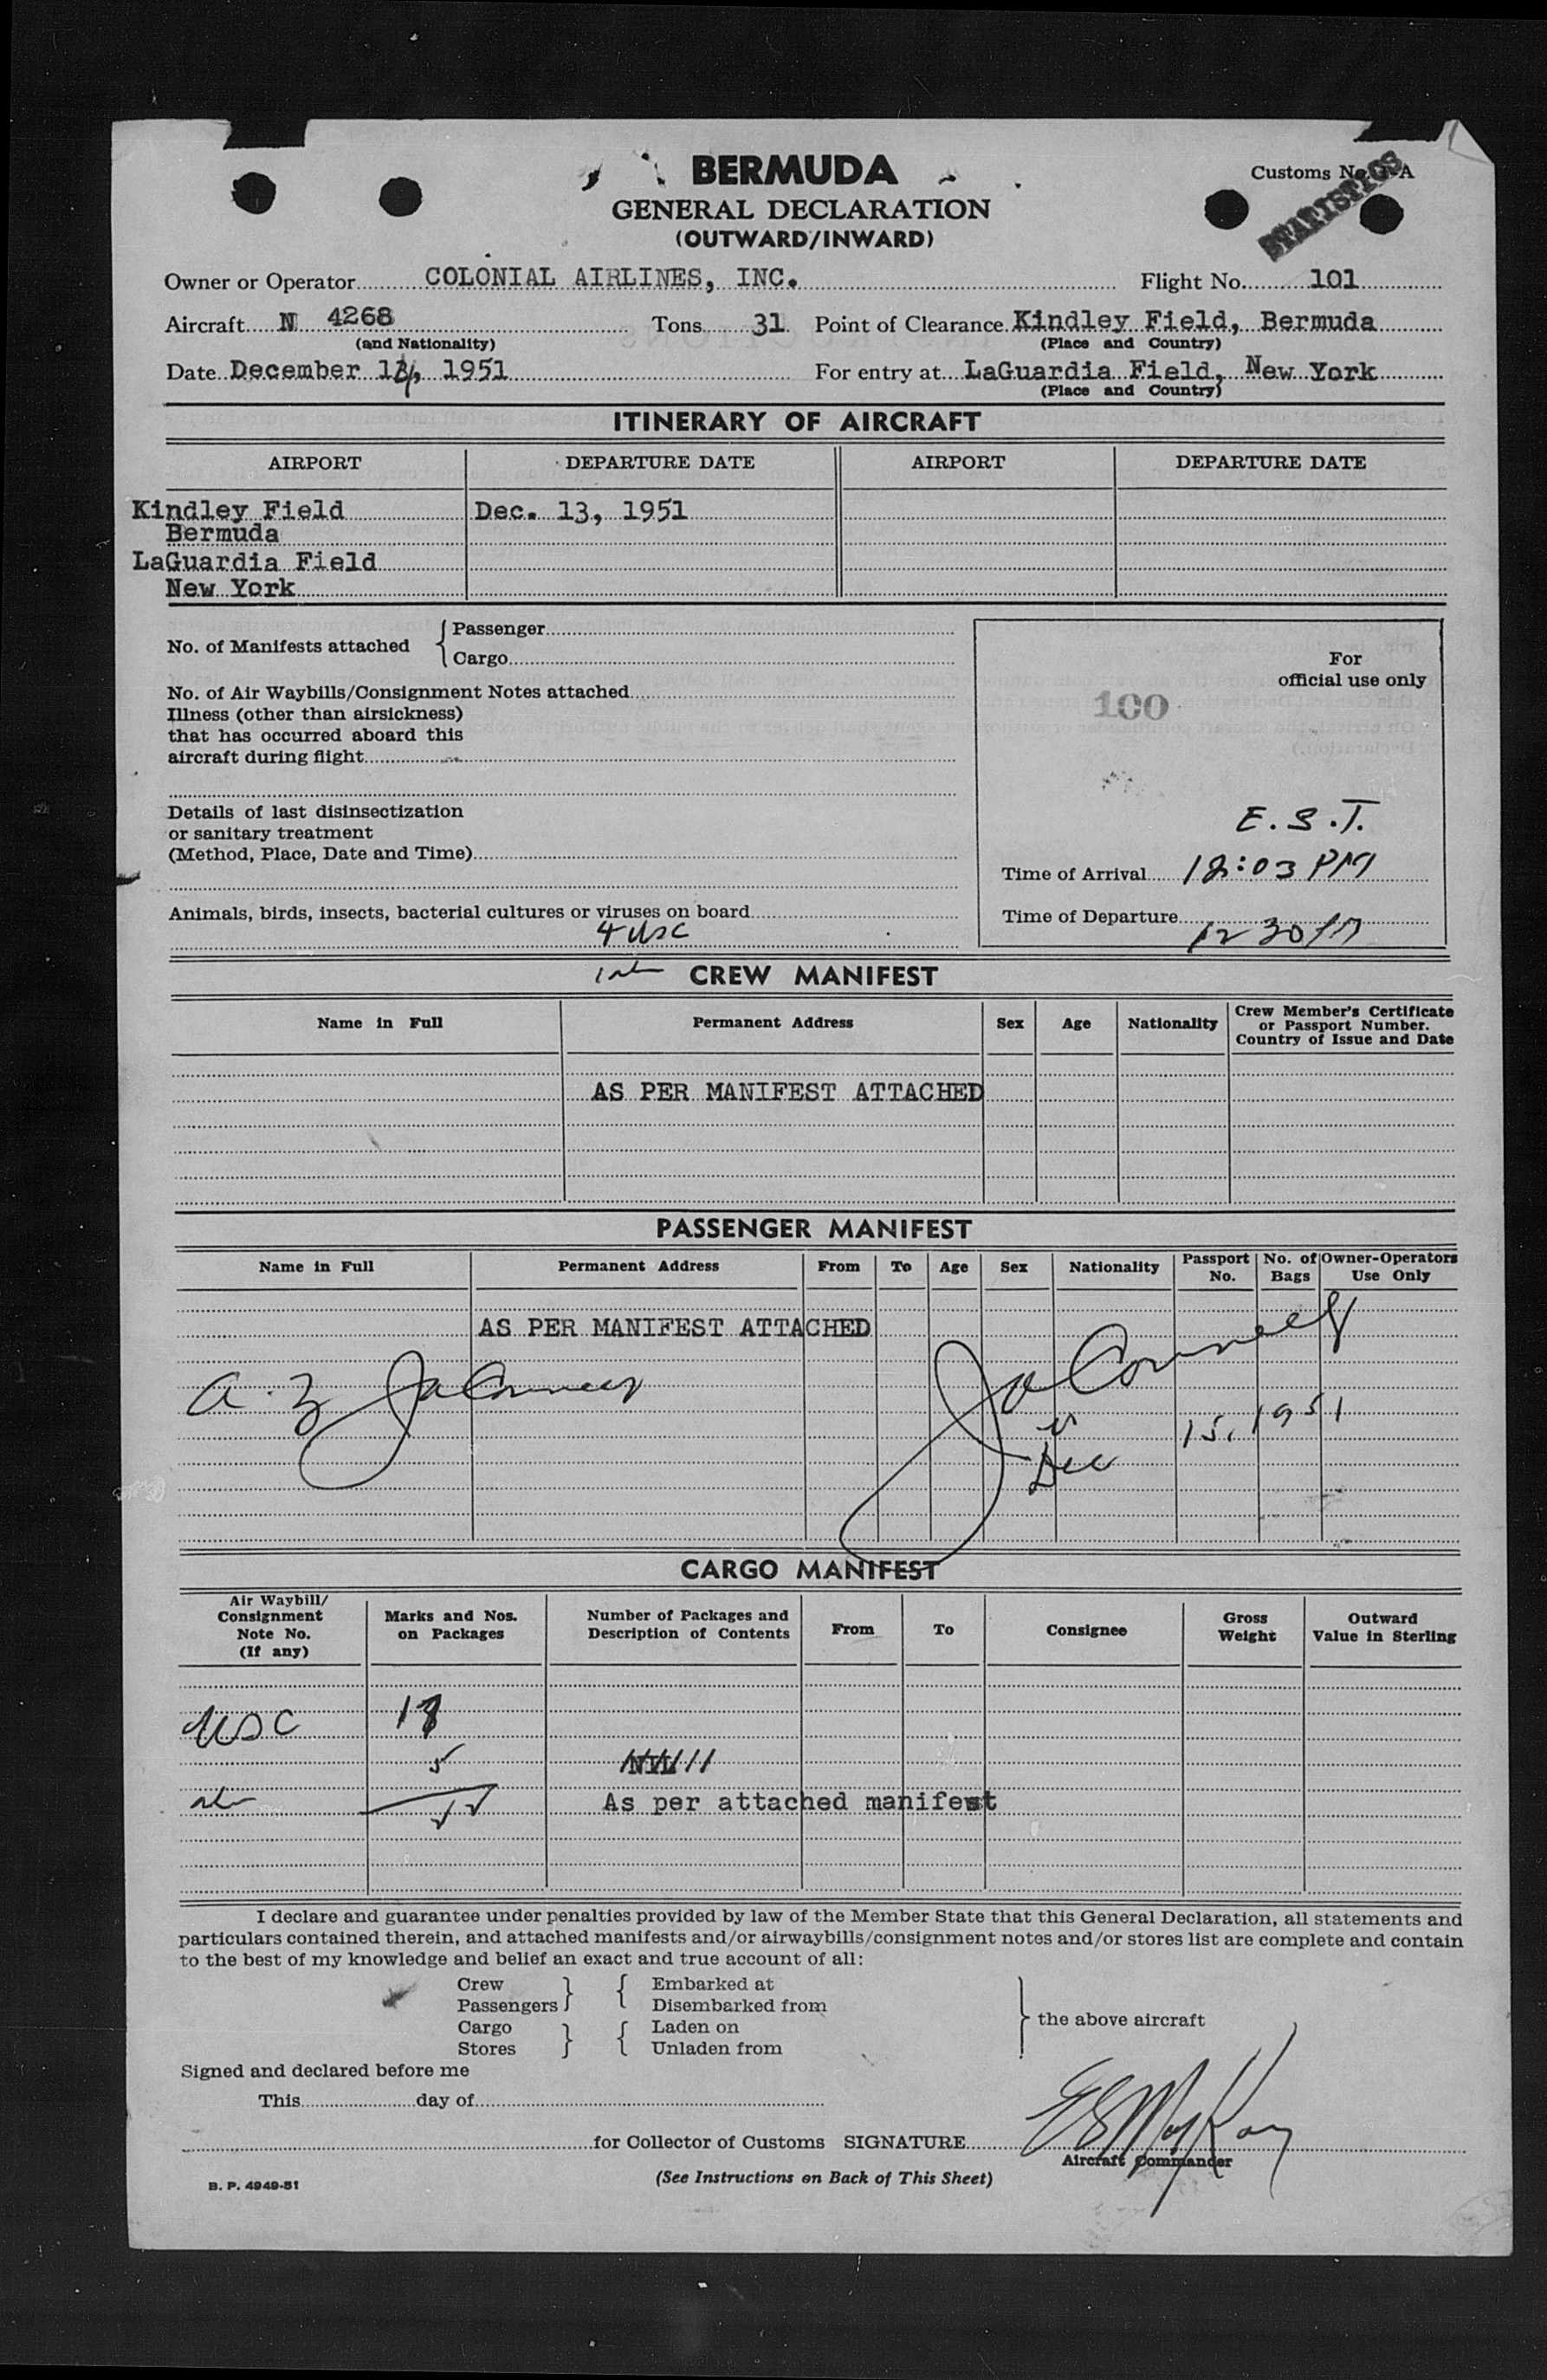 BERMUDA
GENERAL DECLARATION
(OUTWARD/INWARD)
Customs No. A
STATISTICS
Owner or Operator COLONIAL AIRLINES, INC. Flight No. 101
Aircraft N 4268 Tons 31 Point of Clearance Kindley Field, Bermuda
(and Nationality) (Place and Country)
Date December 1 , 1951 For entry at LaGuardia Field, New York
(Place and Country)
ITINERARY OF AIRCRAFT
AIRPORT DEPARTURE DATE AIRPORT DEPARTURE DATE
Kindley Field Dec. 13, 1951
Bermuda
LaGuardia Field
New York
No. of Manifests attached { Passenger
Cargo
No. of Air Waybills/Consignment Notes attached
Illness (other than airsickness)
that has occurred aboard this
aircraft during flight
Details of last disinsectization
or sanitary treatment
(Method, Place, Date and Time)
Animals, birds, insects, bacterial cultures or viruses on board
4 USC
For
official use only
100
E.S.T.
Time of Arrival 12:03 PM
Time of Departure 12 30 PM
CREW MANIFEST
Name in Full Permanent Address Sex Age Nationality Crew Member's Certificate
or Passport Number.
Country of Issue and Date
AS PER MANIFEST ATTACHED
PASSENGER MANIFEST
Name in Full Permanent Address From To Age Sex Nationality Passport No. No. of Bags Owner-Operators Use Only
AS PER MANIFEST ATTACHED
Dec 15, 1951
CARGO MANIFEST
Air Waybill/
Consignment
Note No.
(If any)
Marks and Nos.
on Packages
Number of Packages and
Description of Contents
From To Consignee
Gross
Weight
Outward
Value in Sterling
USC
5
As per attached manifest
I declare and guarantee under penalties provided by law of the Member State that this General Declaration, all statements and
particulars contained therein, and attached manifests and/or airwaybills/consignment notes and/or stores list are complete and contain
to the best of my knowledge and belief an exact and true account of all:
Crew } { Embarked at
Passengers Disembarked from
Cargo } { Laden on
Stores Unladen from
} the above aircraft
Signed and declared before me
This day of
for Collector of Customs SIGNATURE
Aircraft Commander
(See Instructions on Back of This Sheet)
B. P. 4949-51